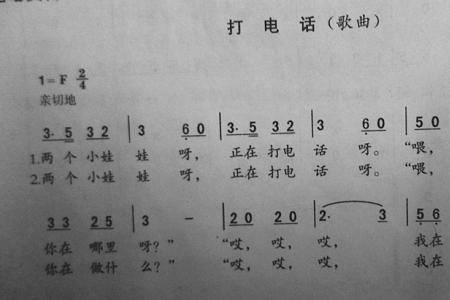 打 电 话（歌曲）
1=F 2/4
亲切地
3· 5 3 2 | 3 6 0 | 3· 5 3 2 | 3 6 0 | 5 0
1.两 个 小娃 娃 呀， 正在 打电 话 呀。 “喂，
2.两 个 小娃 娃 呀， 正在 打电 话 呀。 “喂，
3 3 2 5 | 3 － | 2 0 2 0 | 2· 3 | 5 6
你在 哪里 呀？” “哎， 哎， 哎， 我在
你在 做什 么？” “哎， 哎， 哎， 我在